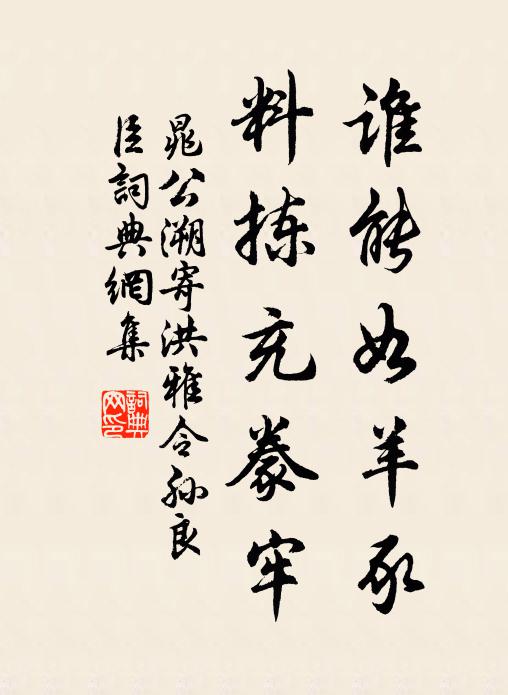 誰能如羊豕
料揀充豢牢
晁公溯寄洪雅令孫良
臣詞典網集
詞典
网印